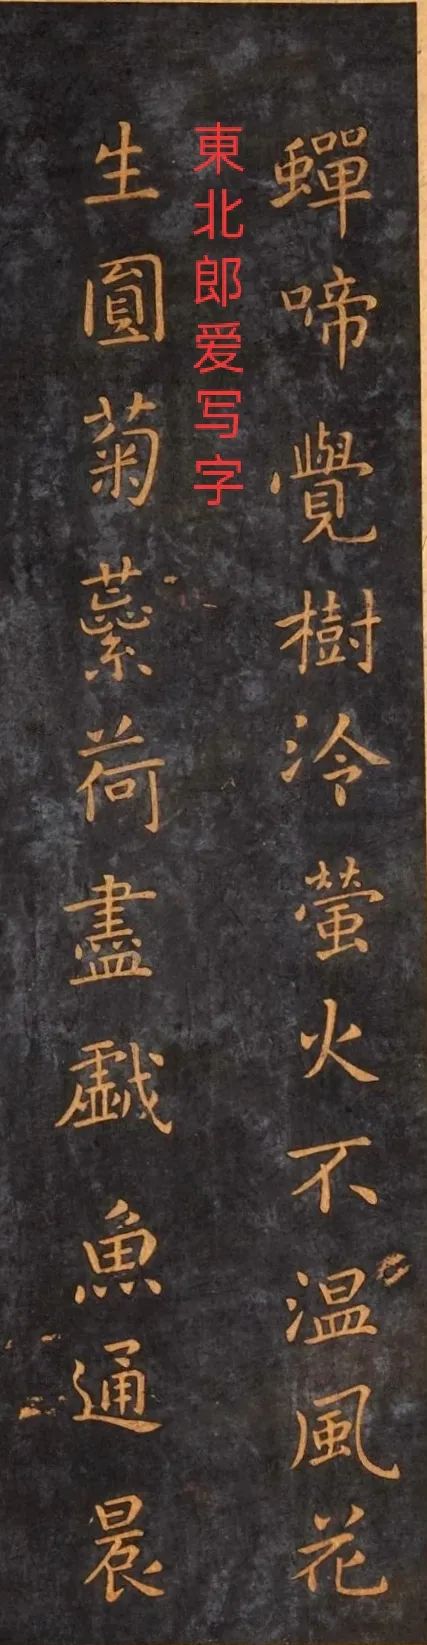 蟬啼覺樹泠螢火不温風花
東北郎爱写字
生圓菊蘂荷盡戱魚通晨